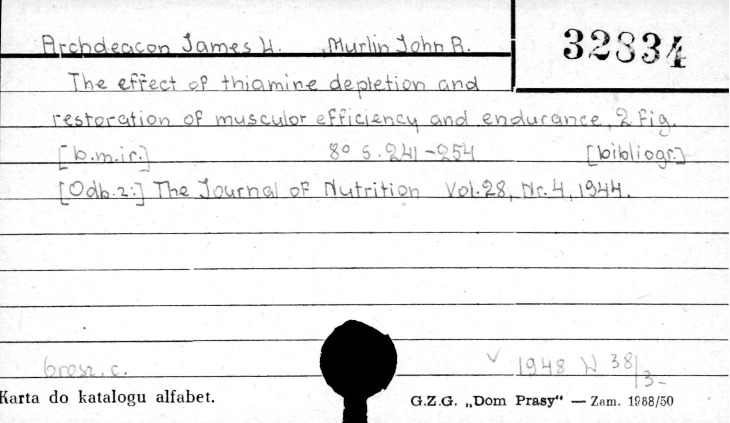 Archdeacon James W. , Murlin John R.
32834
The effect of thiamine depletion and
restoration of musculor efficiency and endurance, 2 fig.
[b.m.ir.] 8° s. 241-254 [bibliogr.]
[Odb.z:] The Journal of Nutrition Vol. 28, Nr. 4, 1944.
brosz. c. V 1948 W 38/3-
Karta do katalogu alfabet.
G.Z.G. „Dom Prasy" — Zam. 1988/50